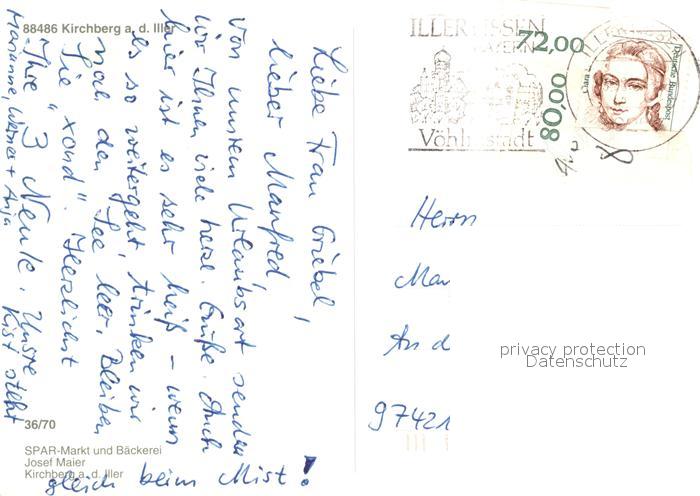 88486 Kirchberg a. d. Iller
Liebe Frau Griebel,
lieber Manfred,
von unserem Urlaubsort senden
wir Ihnen viele herzl. Grüße. Auch
hier ist es sehr heiß – wenn
es so weitergeht, trinken wir
noch den See leer. Bleiben
Sie "xond". Herzlichst
Ihre 3 Neule. Unsre
Marianne, Werner + Anja
Kist steht
gleich beim Mist!
36/70
SPAR-Markt und Bäckerei
Josef Maier
Kirchberg a. d. Iller
ILLERTISSEN
BAYERN
Vöhlinstadt
72,00
80,00
Clara
Deutsche Bundespost
Herrn
Man
An d
97421
privacy protection
Datenschutz